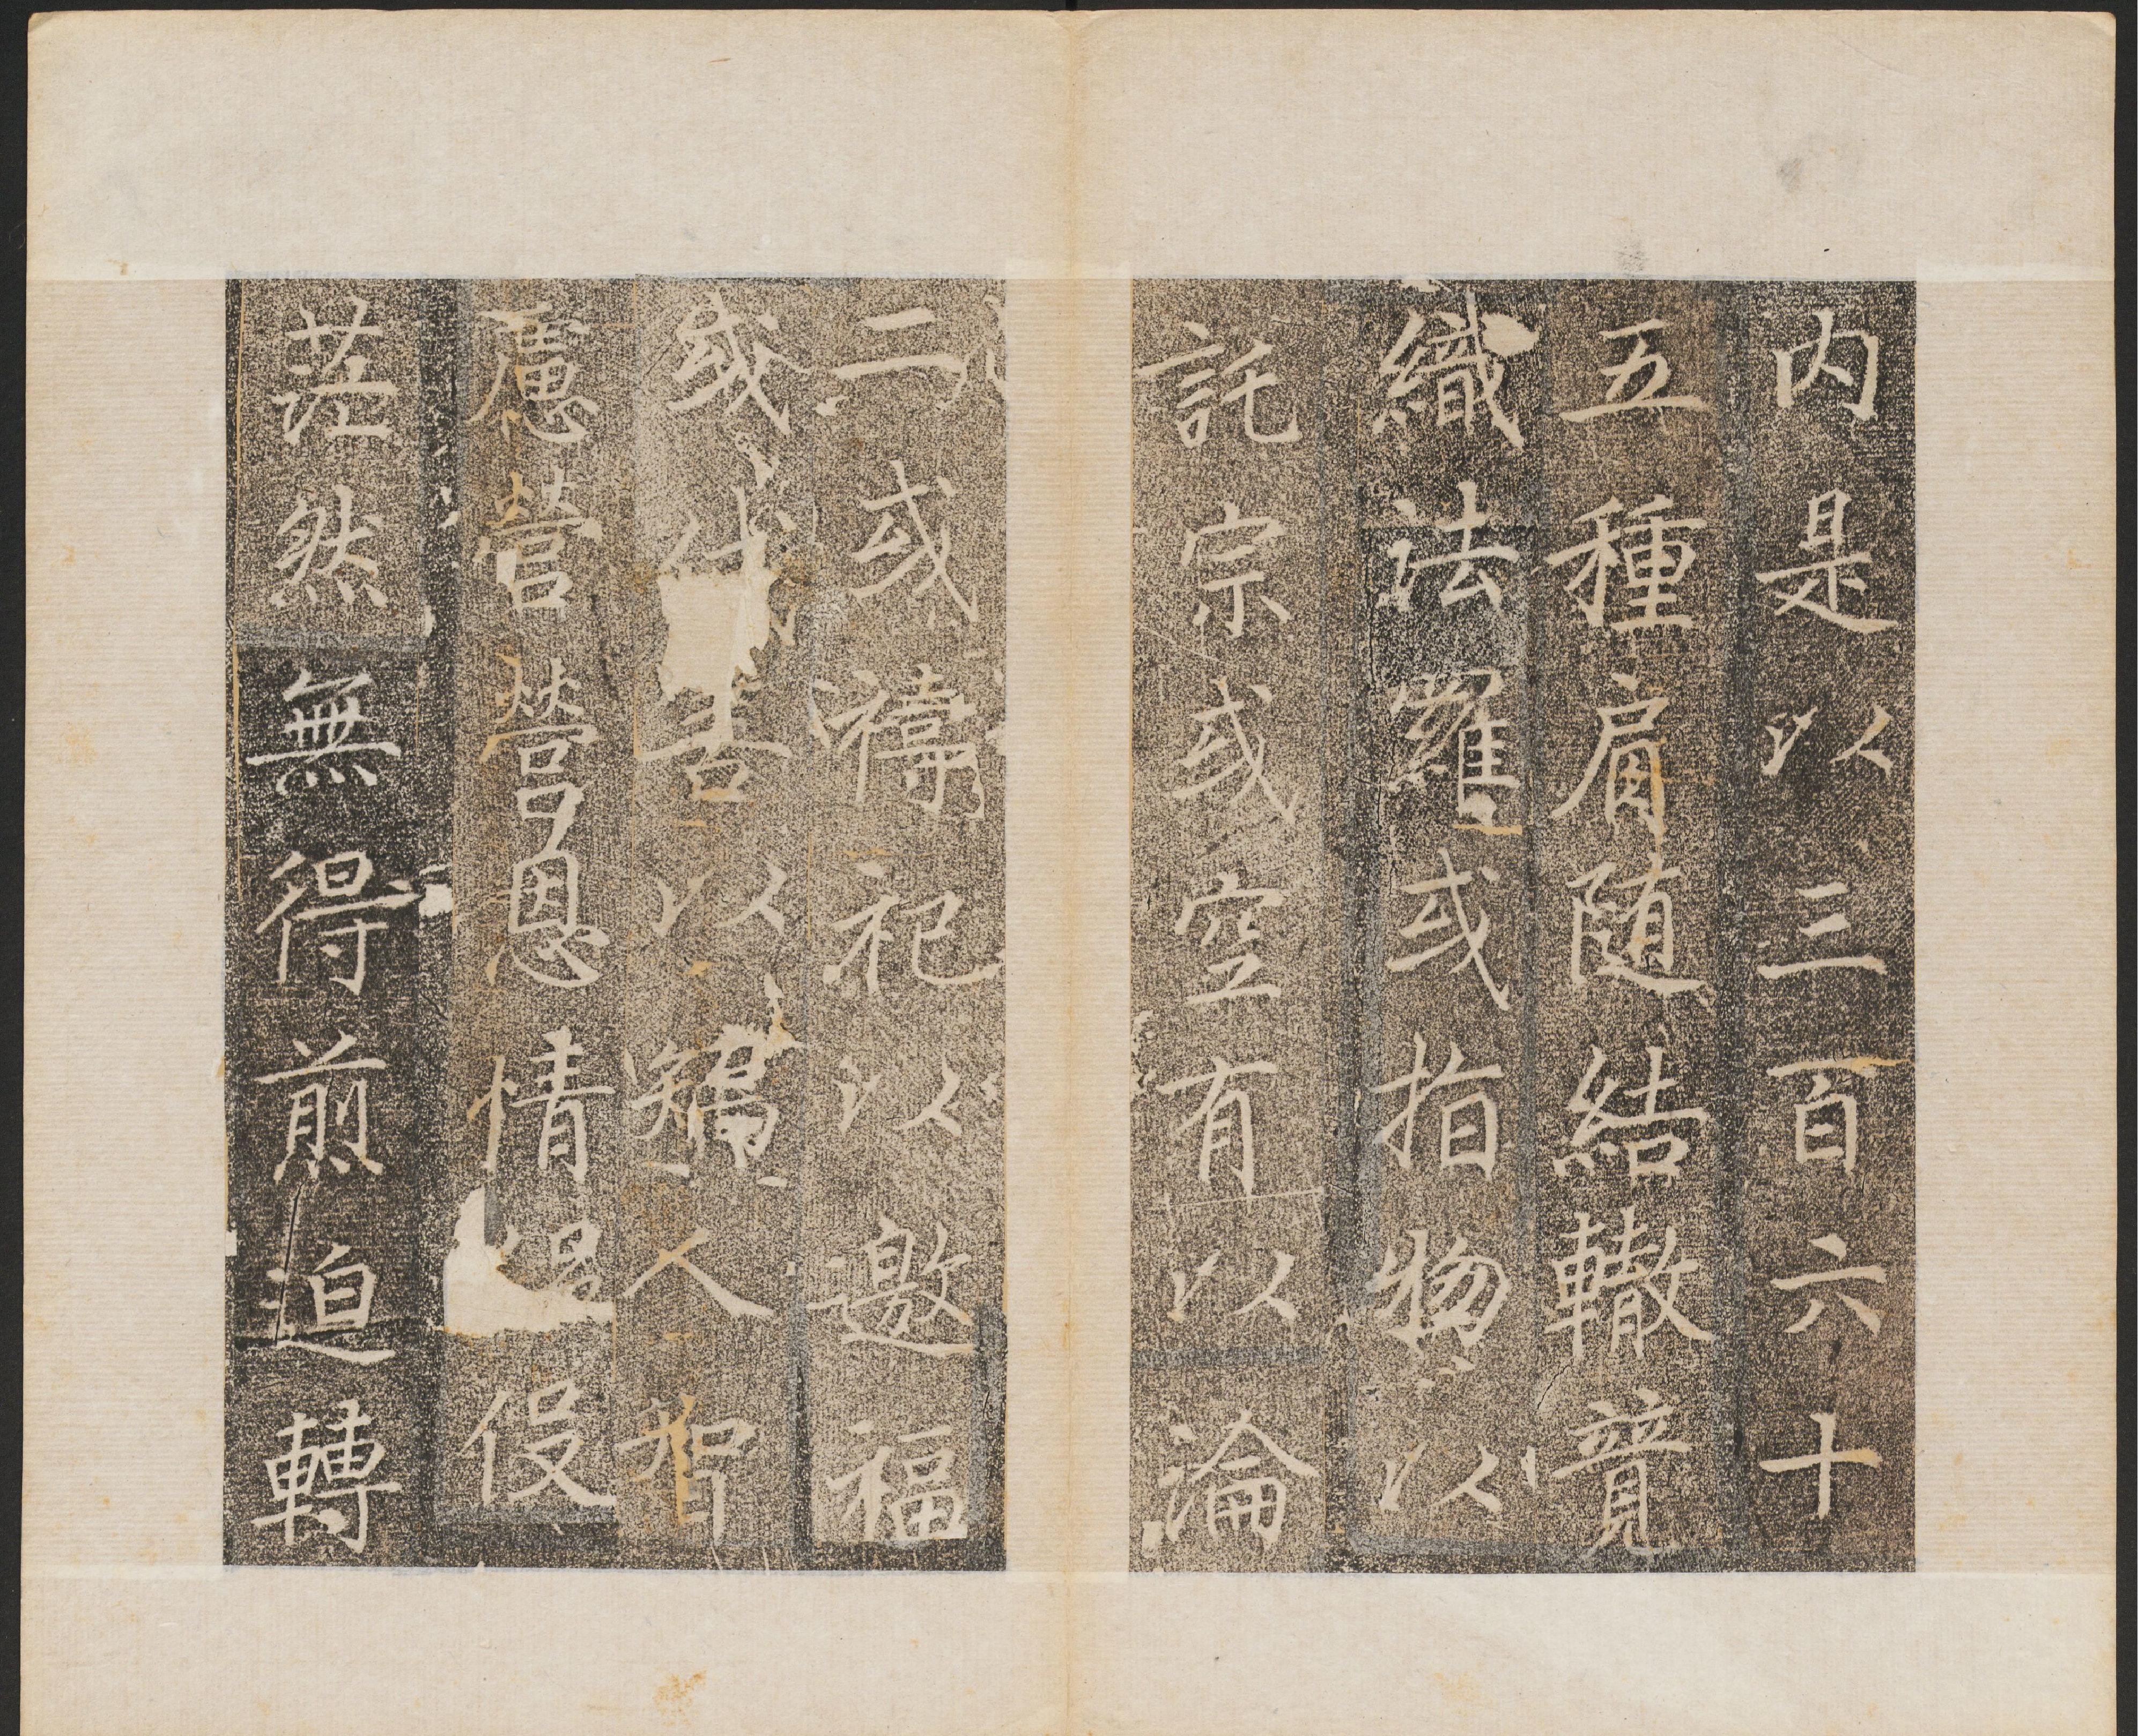 内是以三百六十
五種肩随結轍竟
織法羅或指物以
託宗或空有以淪
二或禱祀以邀福
或伐善以矯人智
慮營營恩情俊
茫然無得煎迫轉